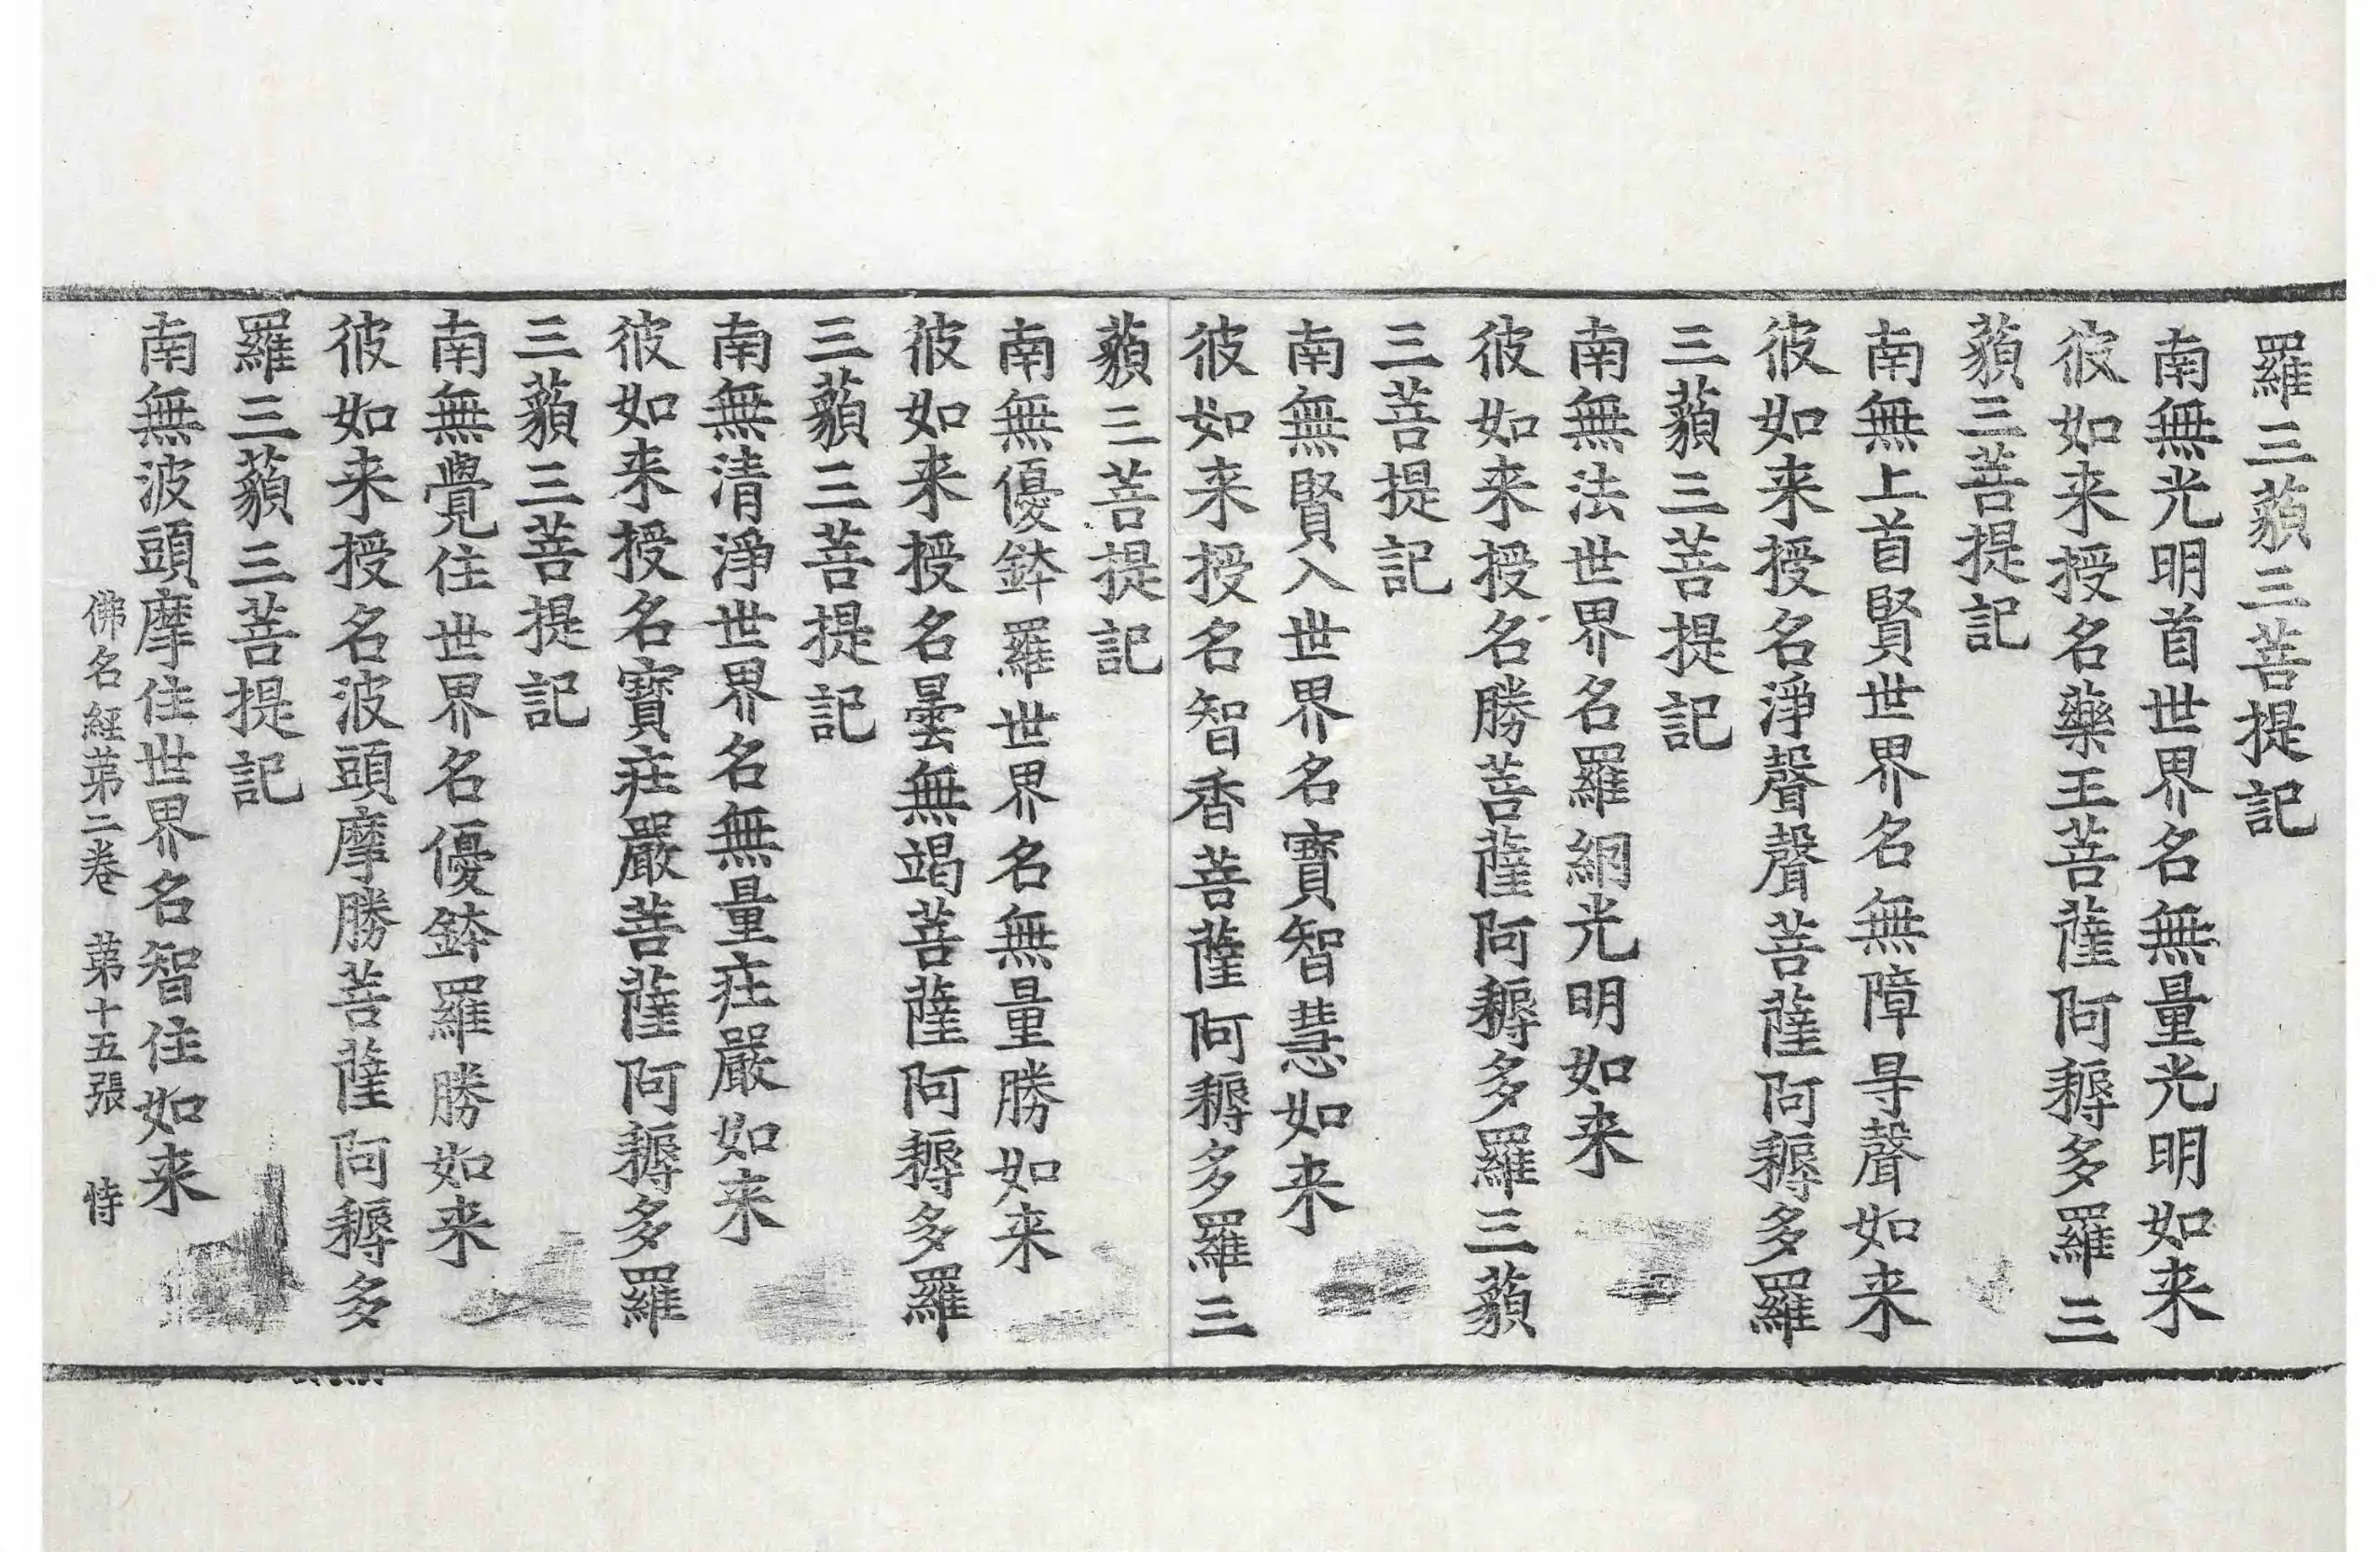 羅三藐三菩提記
南無光明首世界名無量光明如来
彼如来授名藥王菩薩阿耨多羅三
藐三菩提記
南無上首賢世界名無障㝵聲如来
彼如来授名淨聲聲菩薩阿耨多羅
三藐三菩提記
南無法世界名羅網光明如来
彼如来授名勝菩薩阿耨多羅三藐
三菩提記
南無賢入世界名寶智慧如来
彼如来授名智香菩薩阿耨多羅三
藐三菩提記
南無優鉢羅世界名無量勝如来
彼如来授名曇無竭菩薩阿耨多羅
三藐三菩提記
南無清淨世界名無量庄嚴如来
彼如来授名寶庄嚴菩薩阿耨多羅
三藐三菩提記
南無覺住世界名優鉢羅勝如来
彼如来授名波頭摩勝菩薩阿耨多
羅三藐三菩提記
南無波頭摩住世界名智住如来
佛名經苐二卷 苐十五張 恃